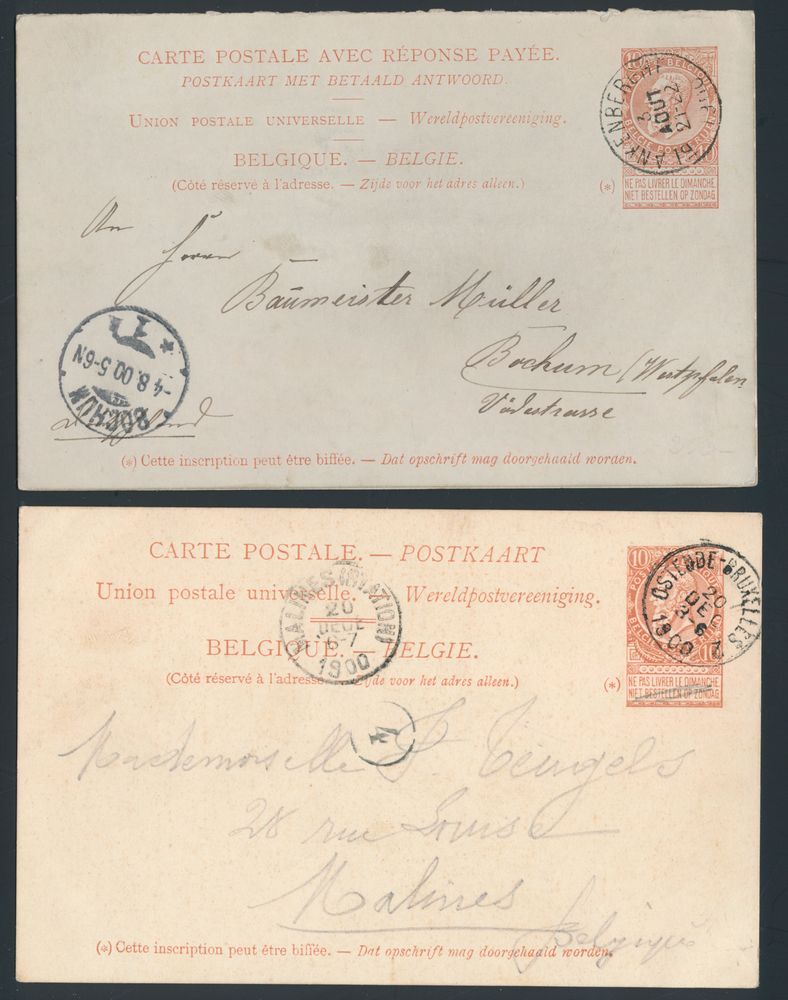 CARTE POSTALE AVEC RÉPONSE PAYÉE.
POSTKAART MET BETAALD ANTWOORD.
UNION POSTALE UNIVERSELLE. — Wereldpostvereeniging.
BELGIQUE. — BELGIE.
(Côté réservé à l'adresse. — Zijde voor het adres alleen.)
(*)
10
NE PAS LIVRER LE DIMANCHE
NIET BESTELLEN OP ZONDAG
BLANKENBERGHE
3
AOUT
21-22
An
Herrn
Baumeister Müller
Bochum (Westphalen
BOCHUM
-4.8.00.5-6N
* 1
(*) Cette inscription peut être biffée. — Dat opschrift mag doorgehaald worden.
CARTE POSTALE. — POSTKAART
Union postale universelle. — Wereldpostvereeniging.
BELGIQUE. — BELGIE.
(Côté réservé à l'adresse. — Zijde voor het adres alleen.)
(*)
10
NE PAS LIVRER LE DIMANCHE
NIET BESTELLEN OP ZONDAG
OSTENDE-BRUXELLES
20
1900
MALINES (STATION)
20
DECE
6-7
1900
4
Mademoiselle F. Teugels
28 rue Louise
Malines
Belgique
(*) Cette inscription peut être biffée. — Dat opschrift mag doorgehaald worden.